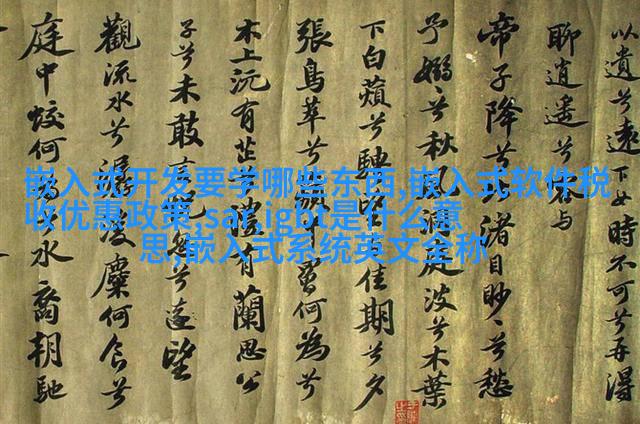 嵌入式开发要学哪些东西,嵌入式软件税
收优惠政策,sar,igbt是什么意
思,嵌入式系统英文全称
以遺兮遠女時不可兮再得
聊逍遙兮與
帝子降兮渚目眇〻兮愁
予嫋〻兮秋風庭波兮木葉
下白蘋兮騁望佳期兮夕
張鳥萃兮罾何為兮
木上沅有芷澧有蘭思公
子兮未敢言兮遠望
觀流水兮潺湲麋何食兮
庭中蛟何水裔朝馳